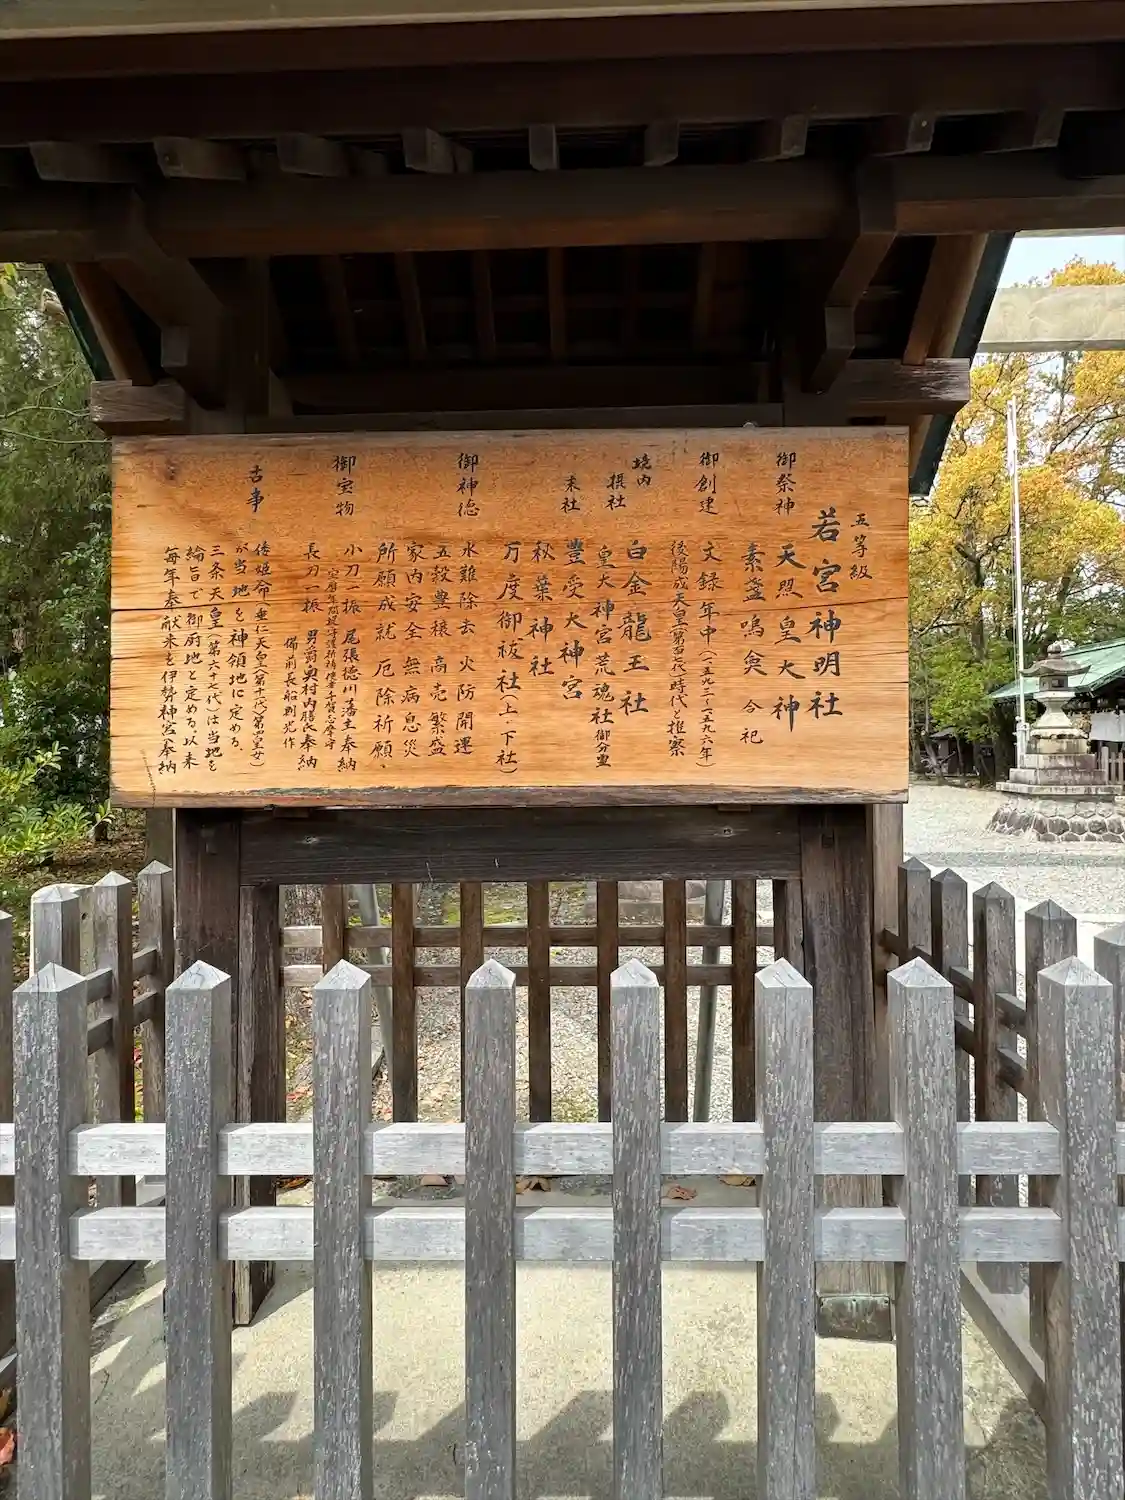 五等級
若宮神明社
御祭神 天照皇大神
素盞嗚尊 合祀
御創建 文録年中(一五九二~一五九六年)
後陽成天皇(第百七代)時代と推察
境内 白金龍王社
摂社 皇大神宮荒魂社御分霊
末社 豊受大神宮
秋葉神社
万度御祓社(上・下社)
御神徳 水難除去 火防開運
五穀豊穣 高売繁盛
家内安全 無病息災
所願成就 厄除祈願
御宝物 小刀一振 尾張徳川藩主奉納
長刀一振 男爵奥村内膳氏奉納
備前長船則光作
古事 倭姫命(垂仁天皇(第十一代)第四皇女)
が当地を神領地に定める、
三条天皇(第六十七代)は当地を
綸旨で御厨地と定める以来
毎年奉献米を伊勢神宮奉納